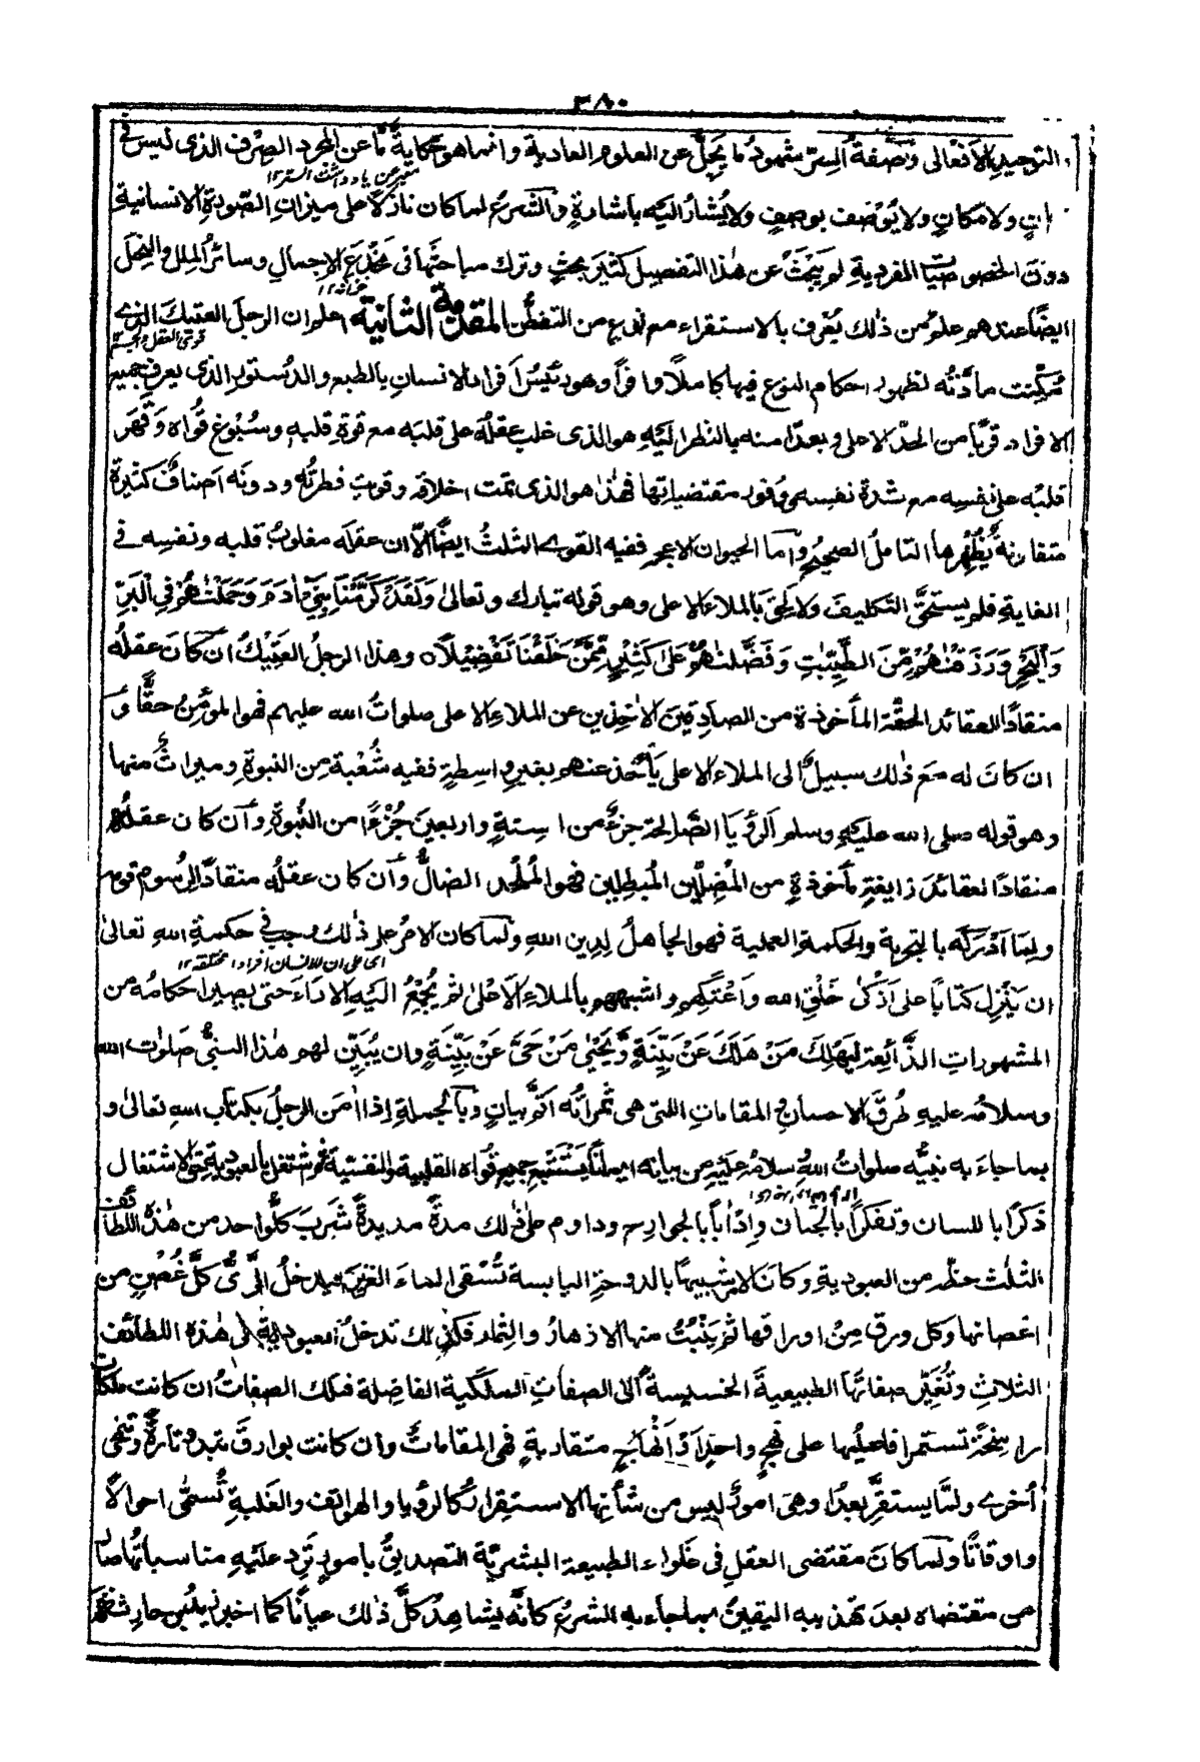 ٣٨٠
التوحيد الأفعالى وصفةُ السِرّ شهودُ ما يَجِلُّ عن العلوم العادية وانما هو حكايةٌ مّا عن المجرد الصِرف الذى ليس فى
انٍ ولا مكانٍ ولا يُوصف بوصفٍ ولا يُشارُ اليَه باشارةٍ والشرع لما كان نازلًا على ميزانِ الصُّورةِ الانسانيةِ
دونَ الخصوصيّات الفرديةِ لم يَبحَثْ عن هٰذا التفصيل كثيرَ بحثٍ وترك مباحثَها فى مخدَعِ الاجمالِ وسائرُ المِلل والنِحَل
ايضًا عندهم علومٌ من ذٰلك يُعرف بالاستقراء مع نوع من التفطُّن المقدِّمةُ الثانيةُ اعلم ان الرجلَ العتيكَ الذى
مُكِّنت مادَّتُه لظهورِ احكام النوع فيها كاملًا وافرًا وهو رئيسُ افراد الانسانِ بالطبع والدُستور الذى يعرف جميع
الافراد قربًا من الحدّ الاعلى وبعدًا منه بالنظر اليَه هو الذى غلب عقلُه على قلبِه مع قوةِ قلبِه وسُبُوغ قُواه وقَهَر
قلبُه على نفسِه مع شدةِ نفسه ووفور مقتضياتها فهٰذا هو الذى تمت اخلاقُه وقويت فطرتُه ودونَه اصنافٌ كثيرة
متفاوتة يُظهِرها التاملُ الصحيحُ وأما الحيوان الاعجم ففيه القوى الثلثُ ايضًا الّا ان عقلَه مغلوبُ قلبه ونفسِه فى
الغايةِ فلم يستحقَّ التكليفَ ولا لَحِقَ بالملاء الاعلى وهو قوله تبارك وتعالىٰ وَلَقَدْ كَرَّمْنَا بَنِىْ اٰدَمَ وَحَمَلْنٰهُمْ فِى الْبَرِّ
وَالْبَحْرِ وَرَزَقْنٰهُمْ مِّنَ الطَّيِّبٰتِ وَفَضَّلْنٰهُمْ عَلٰى كَثِيْرٍ مِّمَّنْ خَلَقْنَا تَفْضِيْلًا ه وهذا الرجلُ العتيكُ ان كَانَ عقلُه
منقادًا للعقائد الحقّة المأخوذة من الصادِقينَ الآخِذِين عن الملاءِ الاعلى صلواتُ الله عليهم فهو المؤمنُ حقًّا وَ
ان كانَ له مَعَ ذٰلك سبيلٌ الى الملاء الاعلى يَأخذ عنهم بغيرِ واسِطةٍ ففيه شُعْبة من النبوةِ وميراثٌ منها
وهو قوله صلى الله عليه وسلم الرؤيا الصَّالحة جزءٌ من ستةٍ واربعينَ جُزْءًا من النُّبوةِ وان كان عقلُه
منقادًا لعقائدَ زايغةٍ مأخوذةٍ من المُضِلّين المُبطِلين فهو المُلحد الضالُّ وان كان عقلُه منقادًا لرُسومِ قومه
ولِمَا ادركَه بالتجربة والحكمة العملية فهو الجاهلُ لِدِين اللهِ ولما كان الامرُ على ذٰلك وجب فى حكمةِ اللهِ تعالىٰ
اى على ان للانسان افرادا مختلفة ١٢
ان يُنَزِّل كتابًا على اَذْكىٰ خَلْقِ الله واَعْتَكِهم واشبههم بالملاءِ الاَعْلىٰ ثم يُجْمِعُ اليَهِ الآراءَ حتى يصيرا حكامُه من
المشهوراتِ الذَّائِعةِ لِيَهْلِكَ مَنْ هَلَكَ عَنْ بَيِّنَةٍ وَّيَحْيٰى مَنْ حَىَّ عَنْ بَيِّنَةٍ وان يُبَيِّن لهم هٰذا النبىُّ صَلَوات الله
وسلامُه عليهِ طُرقَ الاحسانِ والمقاماتِ اللتى هى ثمراتُه اتم بيانٍ وبالجملةِ اِذا اٰمَن الرجلُ بكتاب اللهِ تعالىٰ و
بما جاءَ به نبيُّه صلواتُ اللهِ وسلامُه عليَهِ من بيانه ايمانًا يَسْتَتْبِع جميعَ قُواه القلبية والنفسيةَ ثم اشتغل بالعبوديةِ حقَّ الاشتغال
ذكرًا باللسان وتفكرًا بالجَنان وادْآبًا بالجوارح وداوم على ذٰلك مدةً مديدةً شَرِبَ كلُّ واحدٍ من هٰذه اللطائف
الثلٰث حظَّه من العبوديةِ وكان الامرُ شبيهًا بالدوحةِ اليابسة تُسْقى الماءَ الغزيرَ فيدخلُ الرىُّ كلَّ غُصنٍ من
اغصانها وكل ورقٍ مِنْ اوراقها ثم يَنْبُتُ منها الازهارُ والثمار فكذٰلك تدخلُ العبوديةُ فى هٰذه اللطائف
الثلاثِ وتُغيّر صفاتَها الطبيعيةَ الخسيسةَ الى الصفاتِ الملَكية الفاضلة فتلك الصفاتُ ان كانت ملكات
راسخةً تستمر افاعيلُها على نهجٍ واحدٍ او اَنْهاجٍ متقاربةٍ فهى المقاماتُ وان كانت بوارقَ تبدو تارةً وتنمحى
اُخرى ولمَّا يستقرَّ بعدُ او هى امورٌ ليس من شأنها الاستقرارُ كالرؤيا والهواتف والغَلبةِ تُسمّى احوالًا
واوقاتًا ولما كانَ مقتضى العقلِ فى غَلواء الطبيعة البشريّة التصديقُ بامورٍ تَرِد علَيهِ مناسباتُها صار
من مقتضاه بعدَ تهذيبه اليقينُ بما جاء به الشرعُ كانَّه يشاهِدُ كلَّ ذٰلك عيانًا كما اخبر زيدُ بن حارثةَ